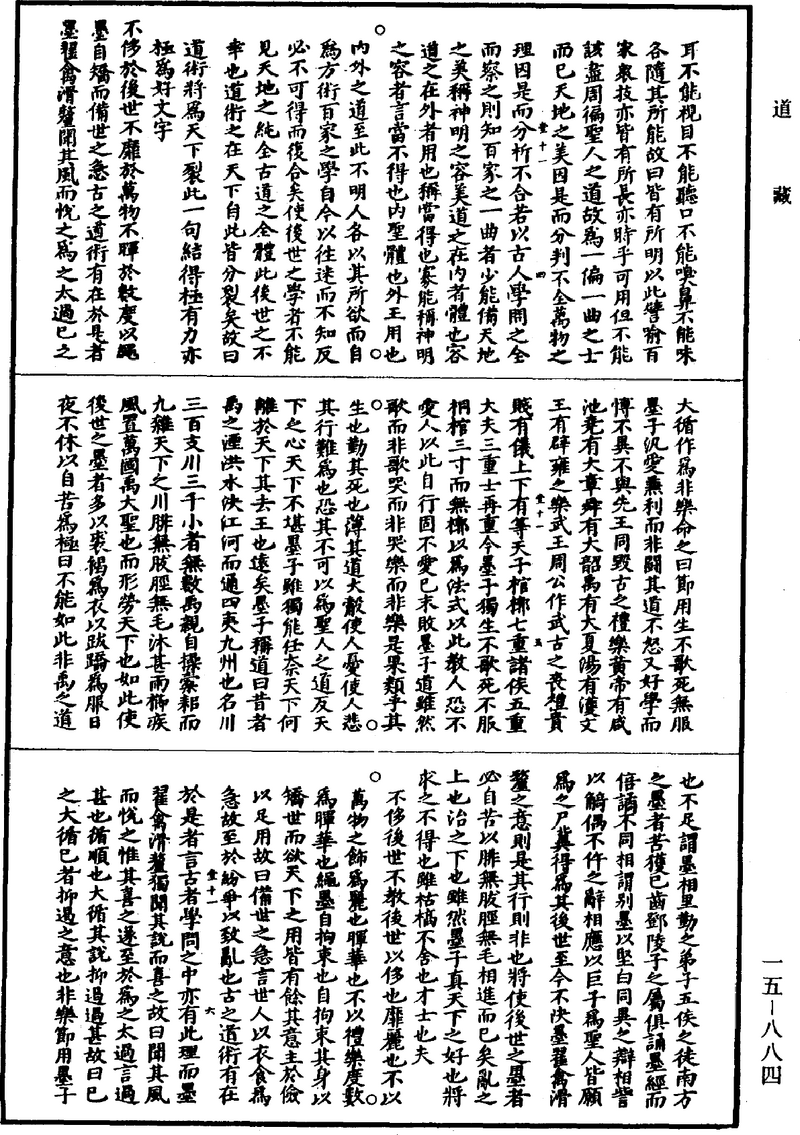 道藏
耳不能視目不能聽口不能嗅鼻不能味
各隨其所能故曰皆有所明以此譬喻百
家衆技亦皆有所長亦時乎可用但不能
該盡周徧聖人之道故為一偏一曲之士
而已天地之美因是而分判不全萬物之
理因是而分析不合若以古人學問之全
而察之則知百家之一曲者少能備天地
之美稱神明之容美道之在內者體也容
道之在外者用也稱當得也寡能稱神明
之容者言當不得也內聖體也外王用也
內外之道至此不明人各以其所欲而自
為方術百家之學自今以往迷而不知反
必不可得而復合矣使後世之學者不能
見天地之純全古道之全體此後世之不
幸也道術之在天下自此皆分裂矣故曰
道術將為天下裂此一句結得極有力亦
極為好文字
不侈於後世不靡於萬物不暉於數度以繩
墨自矯而備世之急古之道術有在於是者
墨翟禽滑釐聞其風而悅之為之太過已之
大循作為非樂命之曰節用生不歌死無服
墨子汎愛兼利而非鬪其道不怒又好學而
博不異不與先王同毀古之禮樂黃帝有咸
池堯有大章舜有大韶禹有大夏湯有濩文
王有辟雍之樂武王周公作武古之喪禮貴
賤有儀上下有等天子棺槨七重諸侯五重
大夫三重士再重今墨子獨生不歌死不服
桐棺三寸而無槨以為法式以此教人恐不
愛人以此自行固不愛己未敗墨子道雖然
歌而非歌哭而非哭樂而非樂是果類乎其
生也勤其死也薄其道大觳使人憂使人悲
其行難為也恐其不可以為聖人之道反天
下之心天下不堪墨子雖獨能任奈天下何
離於天下其去王也遠矣墨子稱道曰昔者
禹之湮洪水決江河而通四夷九州也名川
三百支川三千小者無數禹親自操橐耜而
九雜天下之川腓無胈脛無毛沐甚雨櫛疾
風置萬國禹大聖也而形勞天下也如此使
後世之墨者多以裘褐為衣以跂蹻為服日
夜不休以自苦為極曰不能如此非禹之道
也不足謂墨相里勤之弟子五侯之徒南方
之墨者苦獲已齒鄧陵子之屬俱誦墨經而
倍譎不同相謂別墨以堅白同異之辯相訾
以觭偶不仵之辭相應以巨子為聖人皆願
為之尸冀得為其後世至今不決墨翟禽滑
釐之意則是其行則非也將使後世之墨者
必自苦以腓無胈脛無毛相進而已矣亂之
上也治之下也雖然墨子真天下之好也將
求之不得也雖枯槁不舍也才士也夫
不侈後世不教後世以侈也靡麗也不以
萬物之飾為麗也暉華也不以禮樂度數
為暉華也繩墨自拘束也自拘束其身以
矯世而欲天下之用皆有餘其意主於儉
以足用故曰備世之急言世人以衣食為
急故至於紛爭以致亂也古之道術有在
於是者言古者學問之中亦有此理而墨
翟禽滑釐獨聞其說而喜之故曰聞其風
而悅之惟其喜之遂至於為之太過言過
甚也循順也大循其說抑過過甚故曰已
之大循已者抑遏之意也非樂節用墨子
一五—八八四